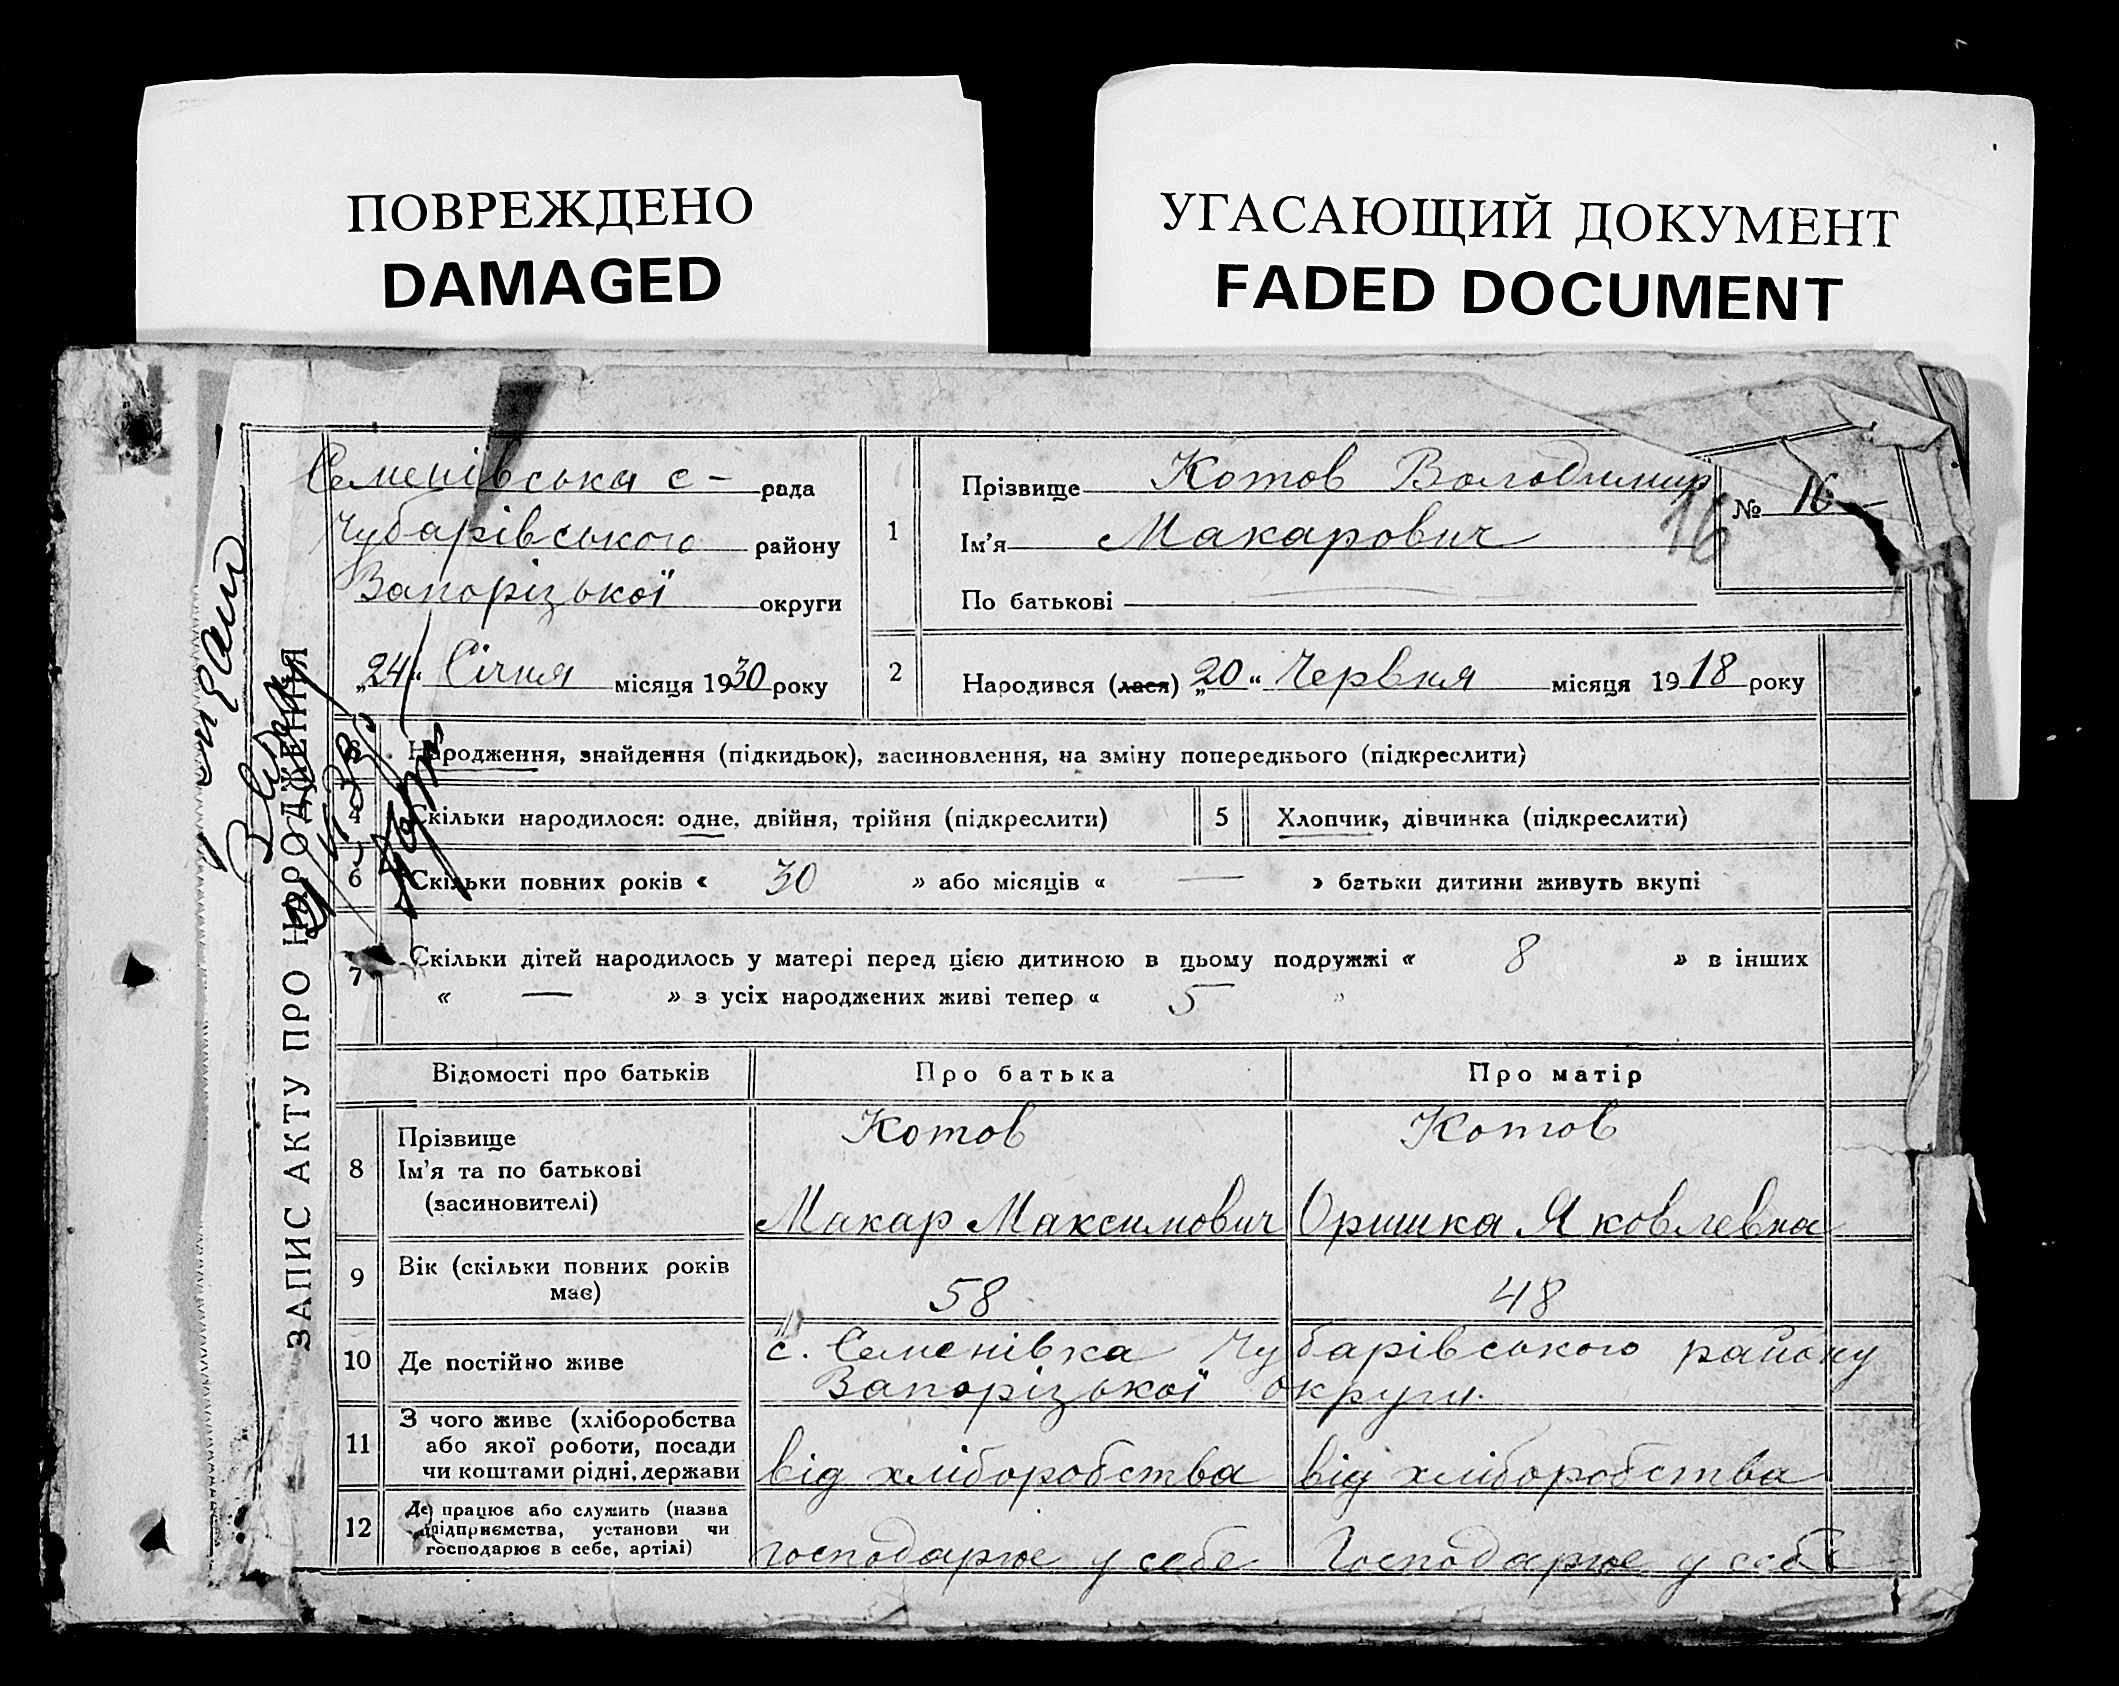 ПОВРЕЖДЕНО
DAMAGED
УГАСАЮЩИЙ ДОКУМЕНТ
FADED DOCUMENT
ЗАПИС АКТУ ПРО НАРОДЖЕННЯ
Семенівська с - рада
Чубарівського району
Запорізької округи
„24“ Січня місяця 1930 року
1
Прізвище Котов Володимир
Ім'я Макарович
По батькові
№ 16
16
2
Народився (лася) „20“ Червня місяця 1918 року
Народження, знайдення (підкидьок), засиновлення, на зміну попереднього (підкреслити)
4 Скільки народилося: одне, двійня, трійня (підкреслити)
5 Хлопчик, дівчинка (підкреслити)
6 Скільки повних років « 30 » або місяців « — » батьки дитини живуть вкупі
7 Скільки дітей народилось у матері перед цією дитиною в цьому подружжі « 8 » в інших
« — » з усіх народжених живі тепер « 5 »
Відомості про батьків Про батька Про матір
8 Прізвище Котов Котов
Ім'я та по батькові
(засиновителі) Макар Максимович Оришка Яковлевна
9 Вік (скільки повних років
має) 58 48
10 Де постійно живе с. Семенівка Чубарівського району
Запорізької округи.
11 З чого живе (хліборобства
або якої роботи, посади
чи коштами рідні, держави від хліборобства від хліборобства
12 Де працює або служить (назва
підприємства, установи чи
господарює в себе, артілі) господарює у себе Господарює у себе